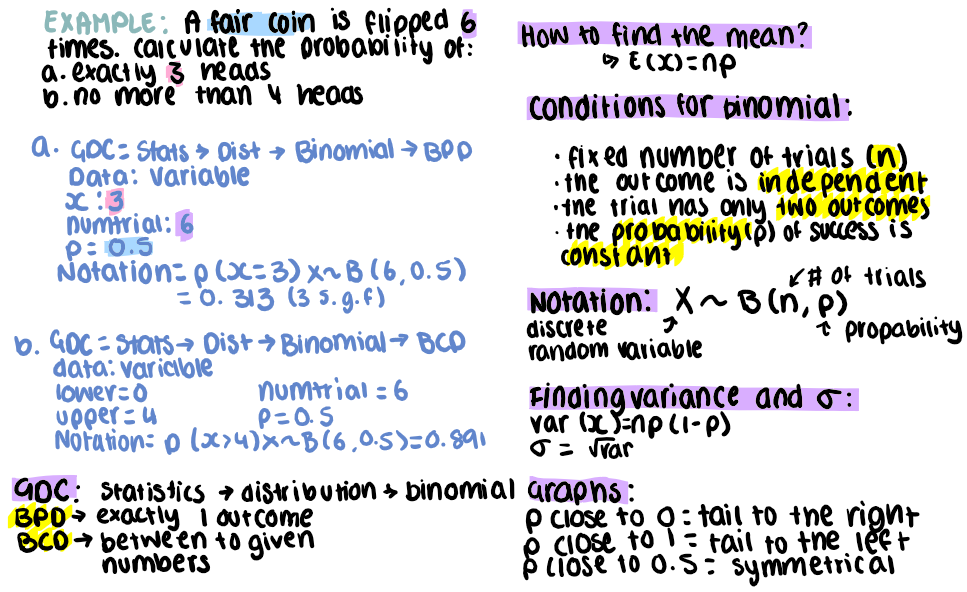 EXAMPLE: A fair coin is flipped 6
times. calculate the probability of:
a. exactly 3 heads
b. no more than 4 heads
a. GDC = Stats → Dist → Binomial → BPD
Data: Variable
x : 3
numtrial: 6
p = 0.5
Notation = p (x = 3) x ~ B (6, 0.5)
= 0.313 (3 s.g.f)
b. GDC = Stats → Dist → Binomial → BCD
data: variable
lower = 0 numtrial = 6
upper = 4 p = 0.5
Notation = p (x > 4) x ~ B (6, 0.5) = 0.891
GDC: Statistics → distribution → binomial
BPD → exactly 1 outcome
BCD → between to given
numbers
How to find the mean?
↳ E(x) = np
Conditions for binomial:
· fixed number of trials (n)
· the outcome is independent
· the trial has only two outcomes
· the probability (p) of success is
constant
↙ # of trials
Notation: X ~ B (n, p)
discrete ↗ ↑ propability
random variable
Finding variance and σ:
var (x) = np (1 - p)
σ = √var
Graphs:
p close to 0 = tail to the right
p close to 1 = tail to the left
p close to 0.5 = symmetrical